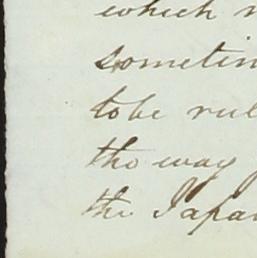 which
sometin
to be rul
the way
the Japan